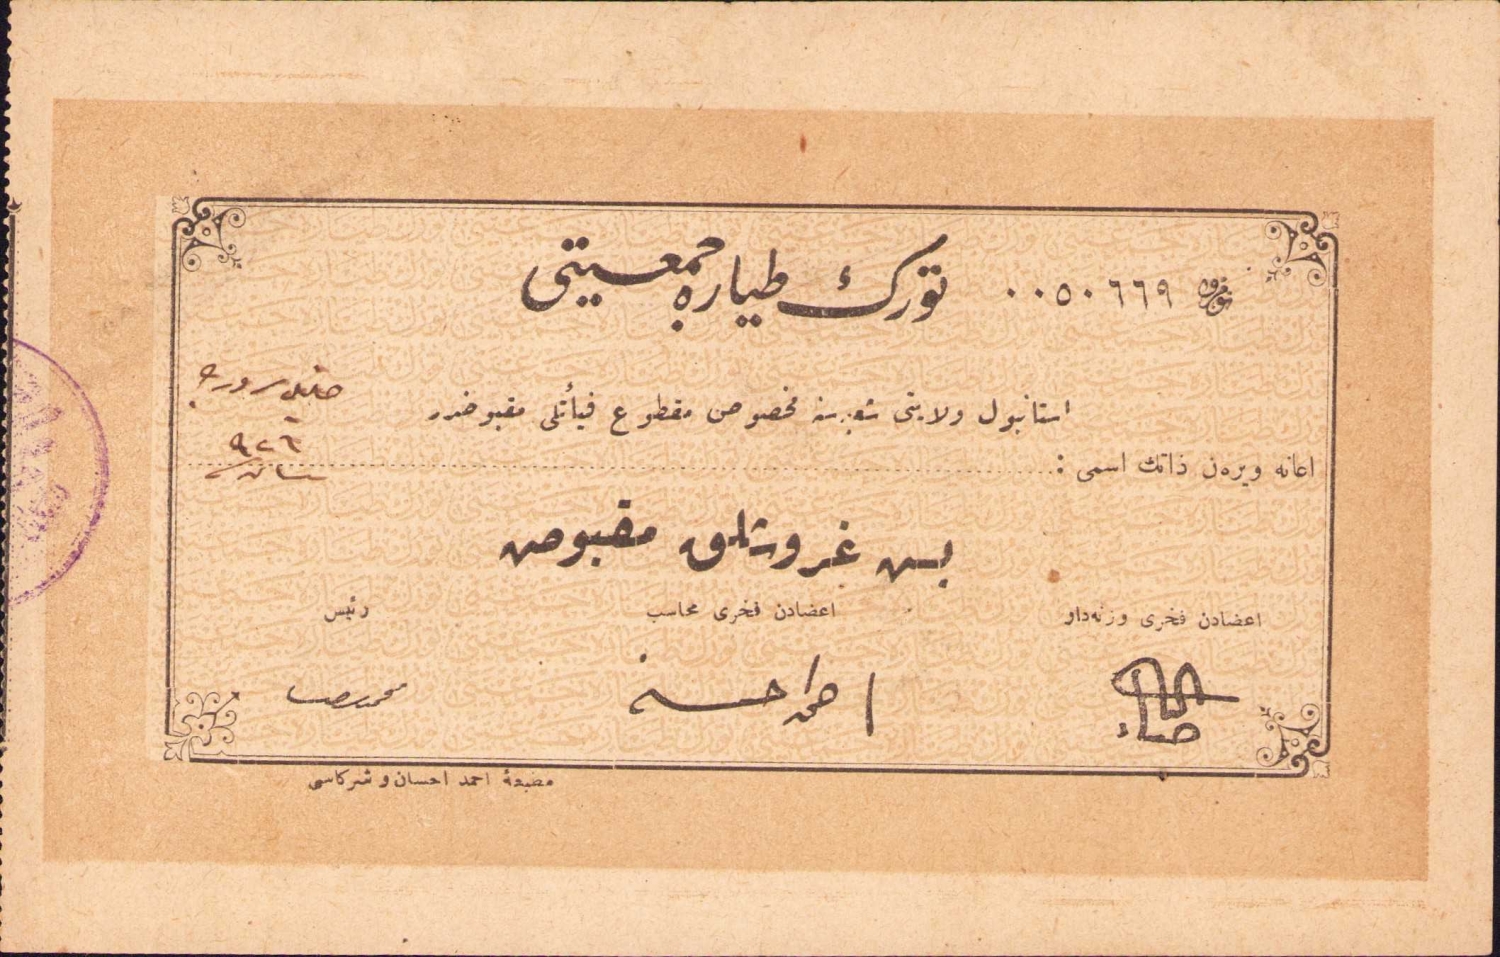 نومرو ٠٠٥٠٦٦٩ تورك طياره جمعيتى
استانبول ولايتى شعبه‌سنه مخصوص مقطوع فيأتلى مقبوضدر
اعانه ويره‌ن ذاتك اسمى :
٩٢٦
بش غروشلق مقبوض
اعضادن فخرى وزنه‌دار اعضادن فخرى محاسب رئيس
مطبعۀ احمد احسان و شركاسى